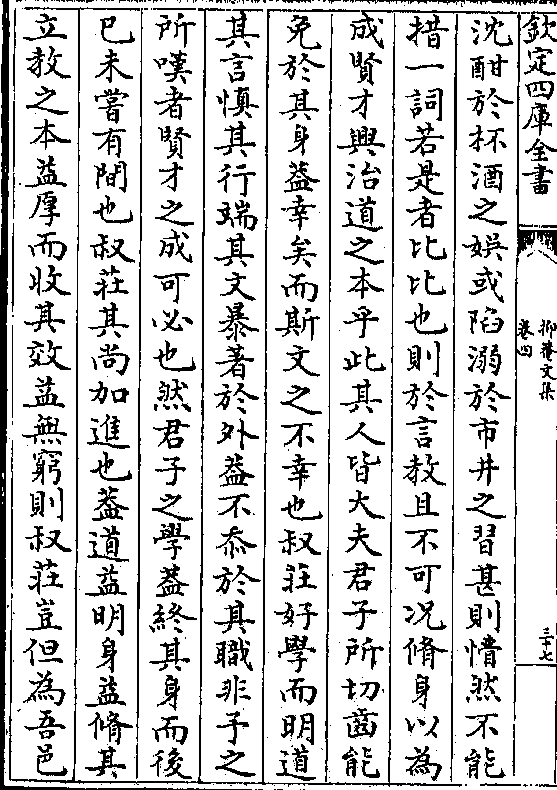 欽定四庫全書
抑菴文集
卷四
三十七
沈酣於杯酒之娛或陷溺於市井之習甚則懵然不能
措一詞若是者比比也則於言教且不可况脩身以為
成賢才興治道之本乎此其人皆大夫君子所切齒能
免於其身葢幸矣而斯文之不幸也叔莊好學而明道
其言慎其行端其文暴著於外葢不忝於其職非予之
所嘆者賢才之成可必也然君子之學葢終其身而後
已未嘗有間也叔莊其尚加進也葢道益明身益脩其
立教之本益厚而收其效益無窮則叔莊豈但為吾邑